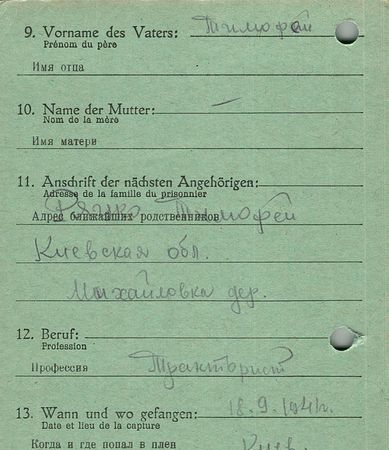 9. Vorname des Vaters: Тимофей
Prénom du père
Имя отца
10. Name der Mutter: —
Nom de la mère
Имя матери
11. Anschrift der nächsten Angehörigen:
Adresse de la famille du prisonnier
Адрес ближайших родственников Тимофей
Киевская обл.
Михайловка дер.
12. Beruf:
Profession
Профессия Тракторист
13. Wann und wo gefangen: 18.9.1941г.
Date et lieu de la capture
Когда и где попал в плен Киев